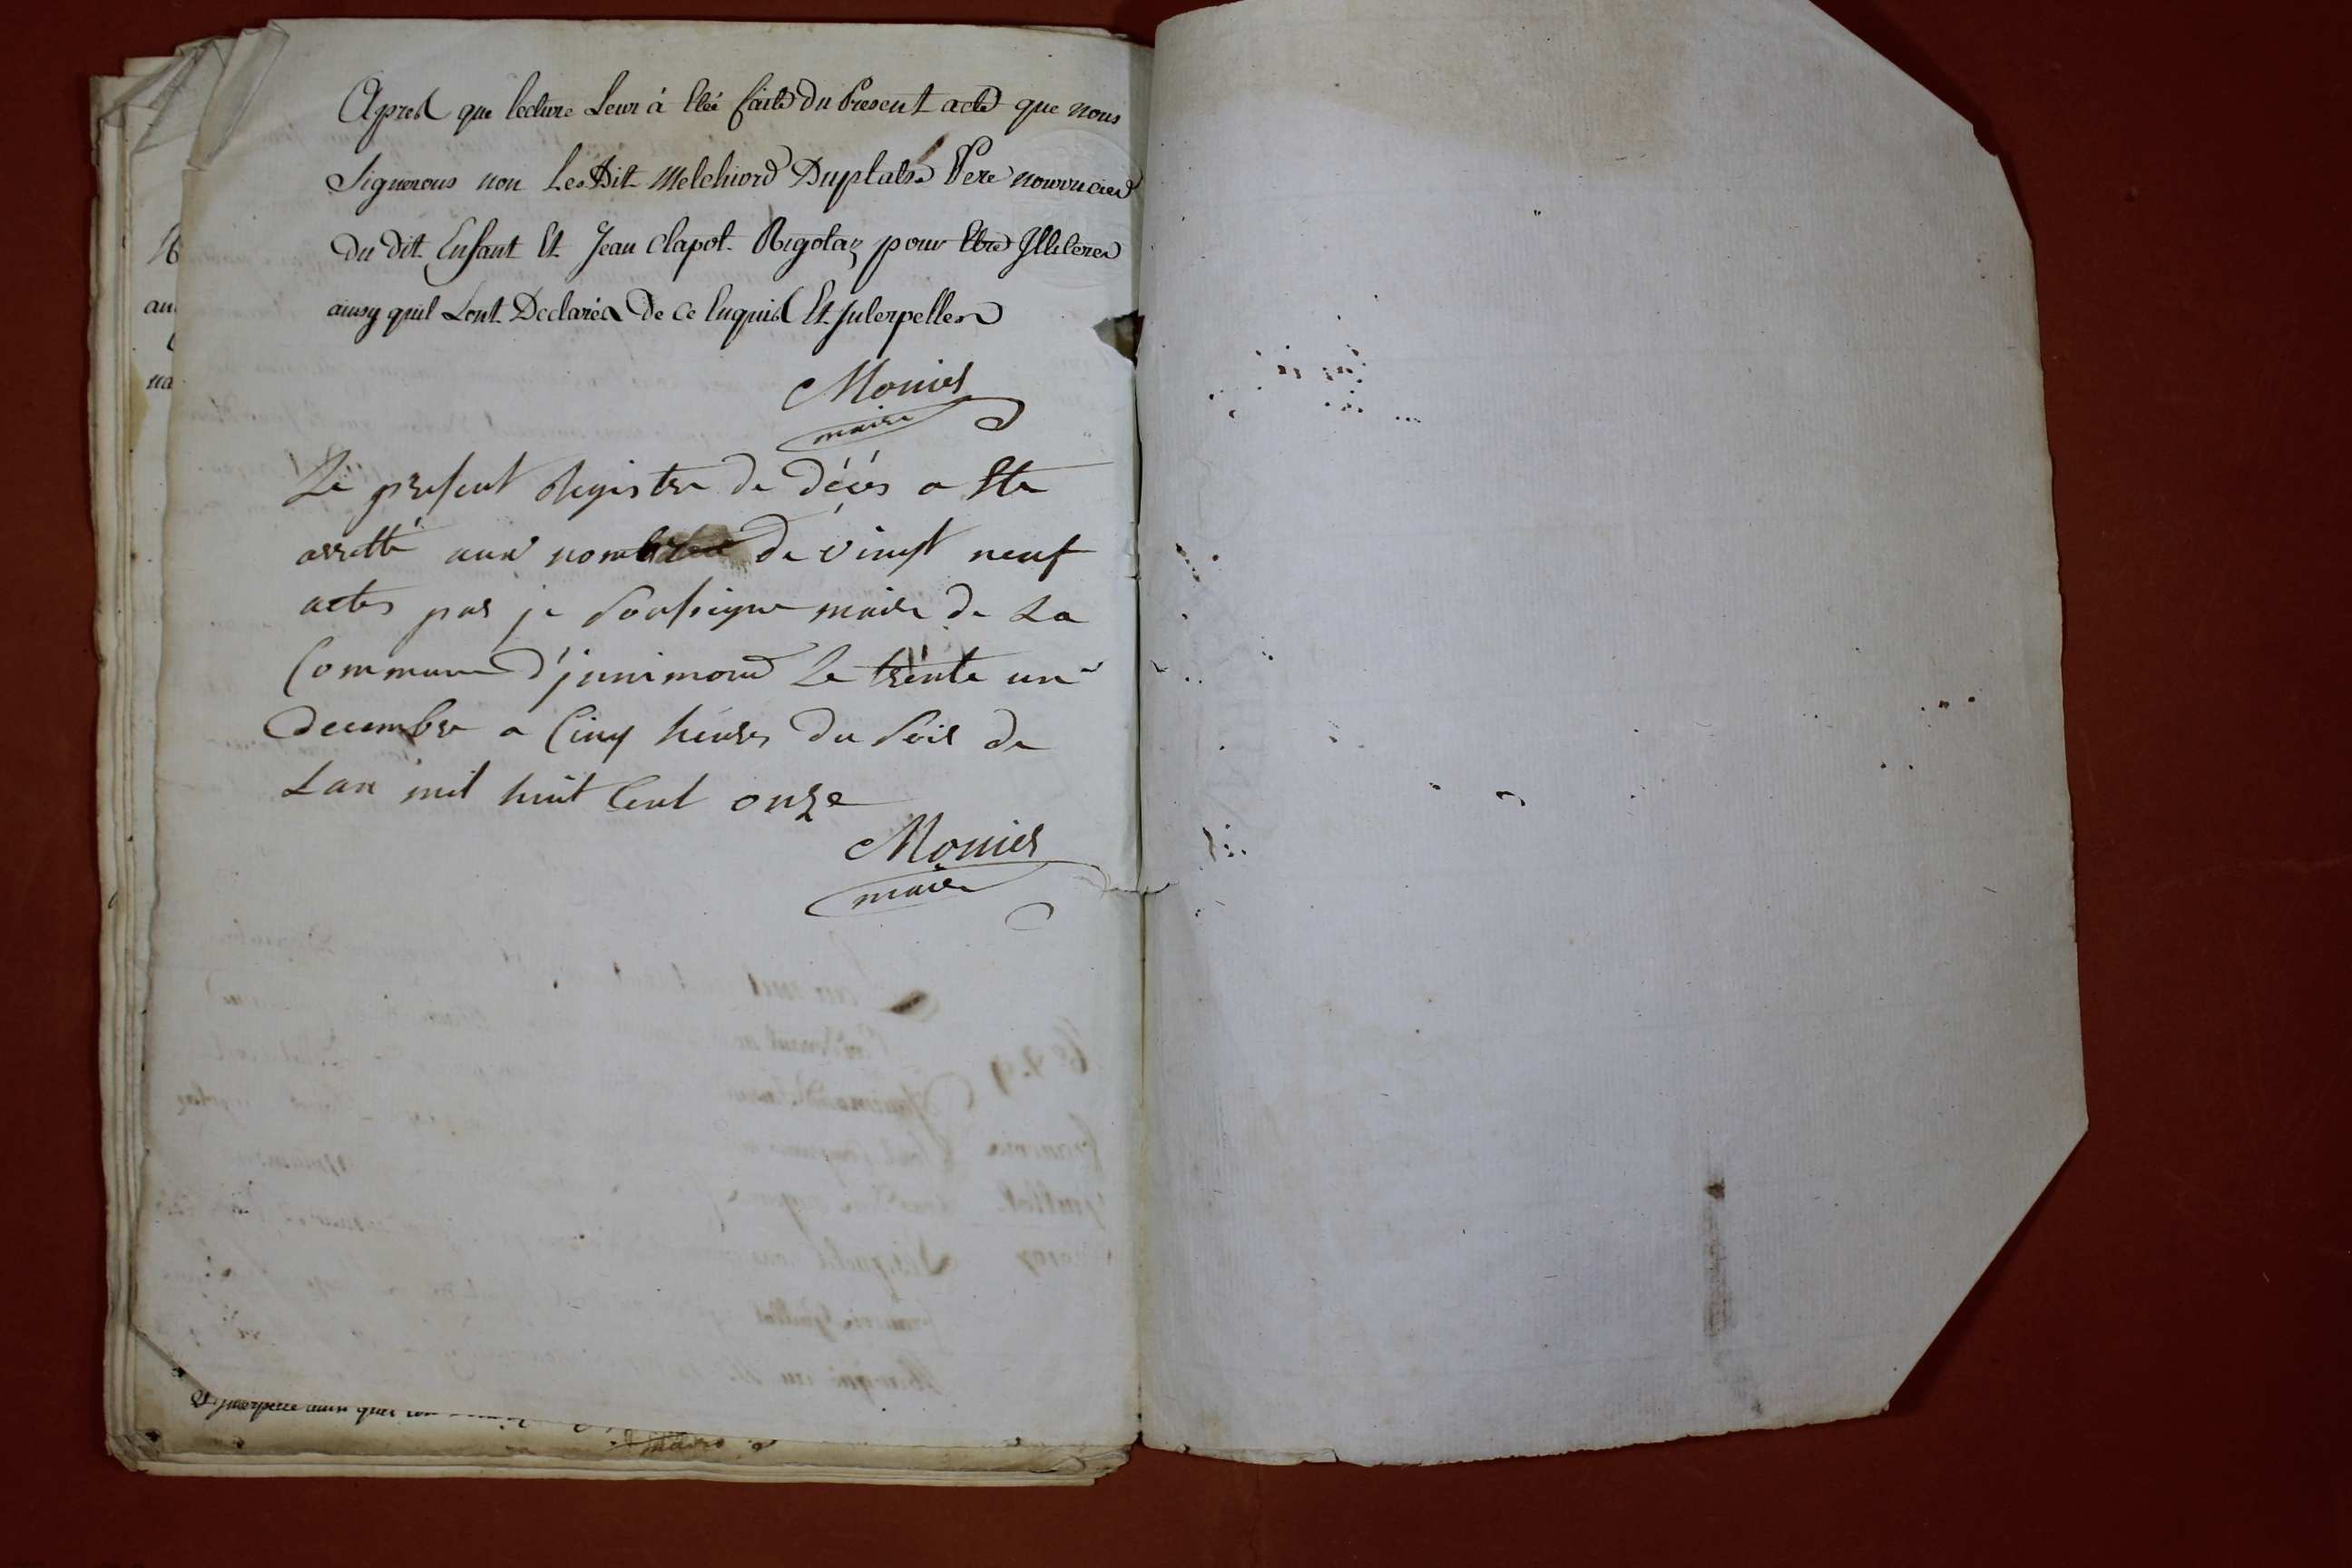 Apres que lecture Leur à Eté faite du Present acte que nous
Signerons non Les Dit Melchiord Duplatre Pere nourricier
du dit Enfant Et Jean Clapot Rigolaz pour Etre Illiterer
ainsy quil Lont Declarés de ce Enquis Et Interpeller
Monier
maire
Le present Registre de décés a Ete
arretté aux nombre de vingt neuf
actes par je Soussigne maire de La
Commune d'jnnimond Le trente un
decembre a Cinq heures du Soir de
Lan mil huit Cent onze
Monier
maire